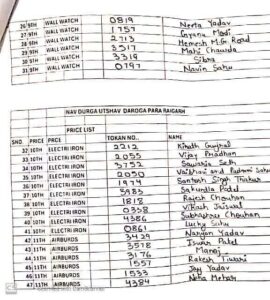 26 9TH WALL WATCH 0819 Neeta Yadav
27 9TH WALL WATCH 1757 Gyanu Modi
28 9TH WALL WATCH 2713 Hemesh M.G Road
29 9TH WALL WATCH 3517 Mahi Chawda
30 9TH WALL WATCH 3319 Sibra
31 9TH WALL WATCH 0797 Navin Sahu
NAV DURGA UTSHAV DAROGA PARA RAIGARH
PRICE LIST
SNO. PRICE PRICE TOKAN NO.. NAME
32 10TH ELECTRI IRON 2212 Gwyhal
33 10TH ELECTRI IRON 2055 Vijay Pradhan
34 10TH ELECTRI IRON 3752 Sawaria Seth
35 10TH ELECTRI IRON 2050 Vaibhavi and Padmani Sahu
36 10TH ELECTRI IRON 1974 Santosh Singh Thakur
37 10TH ELECTRI IRON 5985 Sakunda Patel
38 10TH ELECTRI IRON 1818 Rajesh Chouhan
39 10TH ELECTRI IRON 0358 Vikash Jaiswal
40 10TH ELECTRI IRON 4386 Subhashree Chouhan
41 10TH ELECTRI IRON 0861 Lucky Sahu
42 11TH AIRBURDS 3429 Naryan Yadav
43 11TH AIRBURDS 3578 Iswar Patel
44 11TH AIRBURDS 3176 Manoj
45 11TH AIRBURDS 1557 Rakesh Tiwari
46 11TH AIRBURDS 1533 Jay Yadav
47 11TH AIRBURDS 4384 Neha Mehar